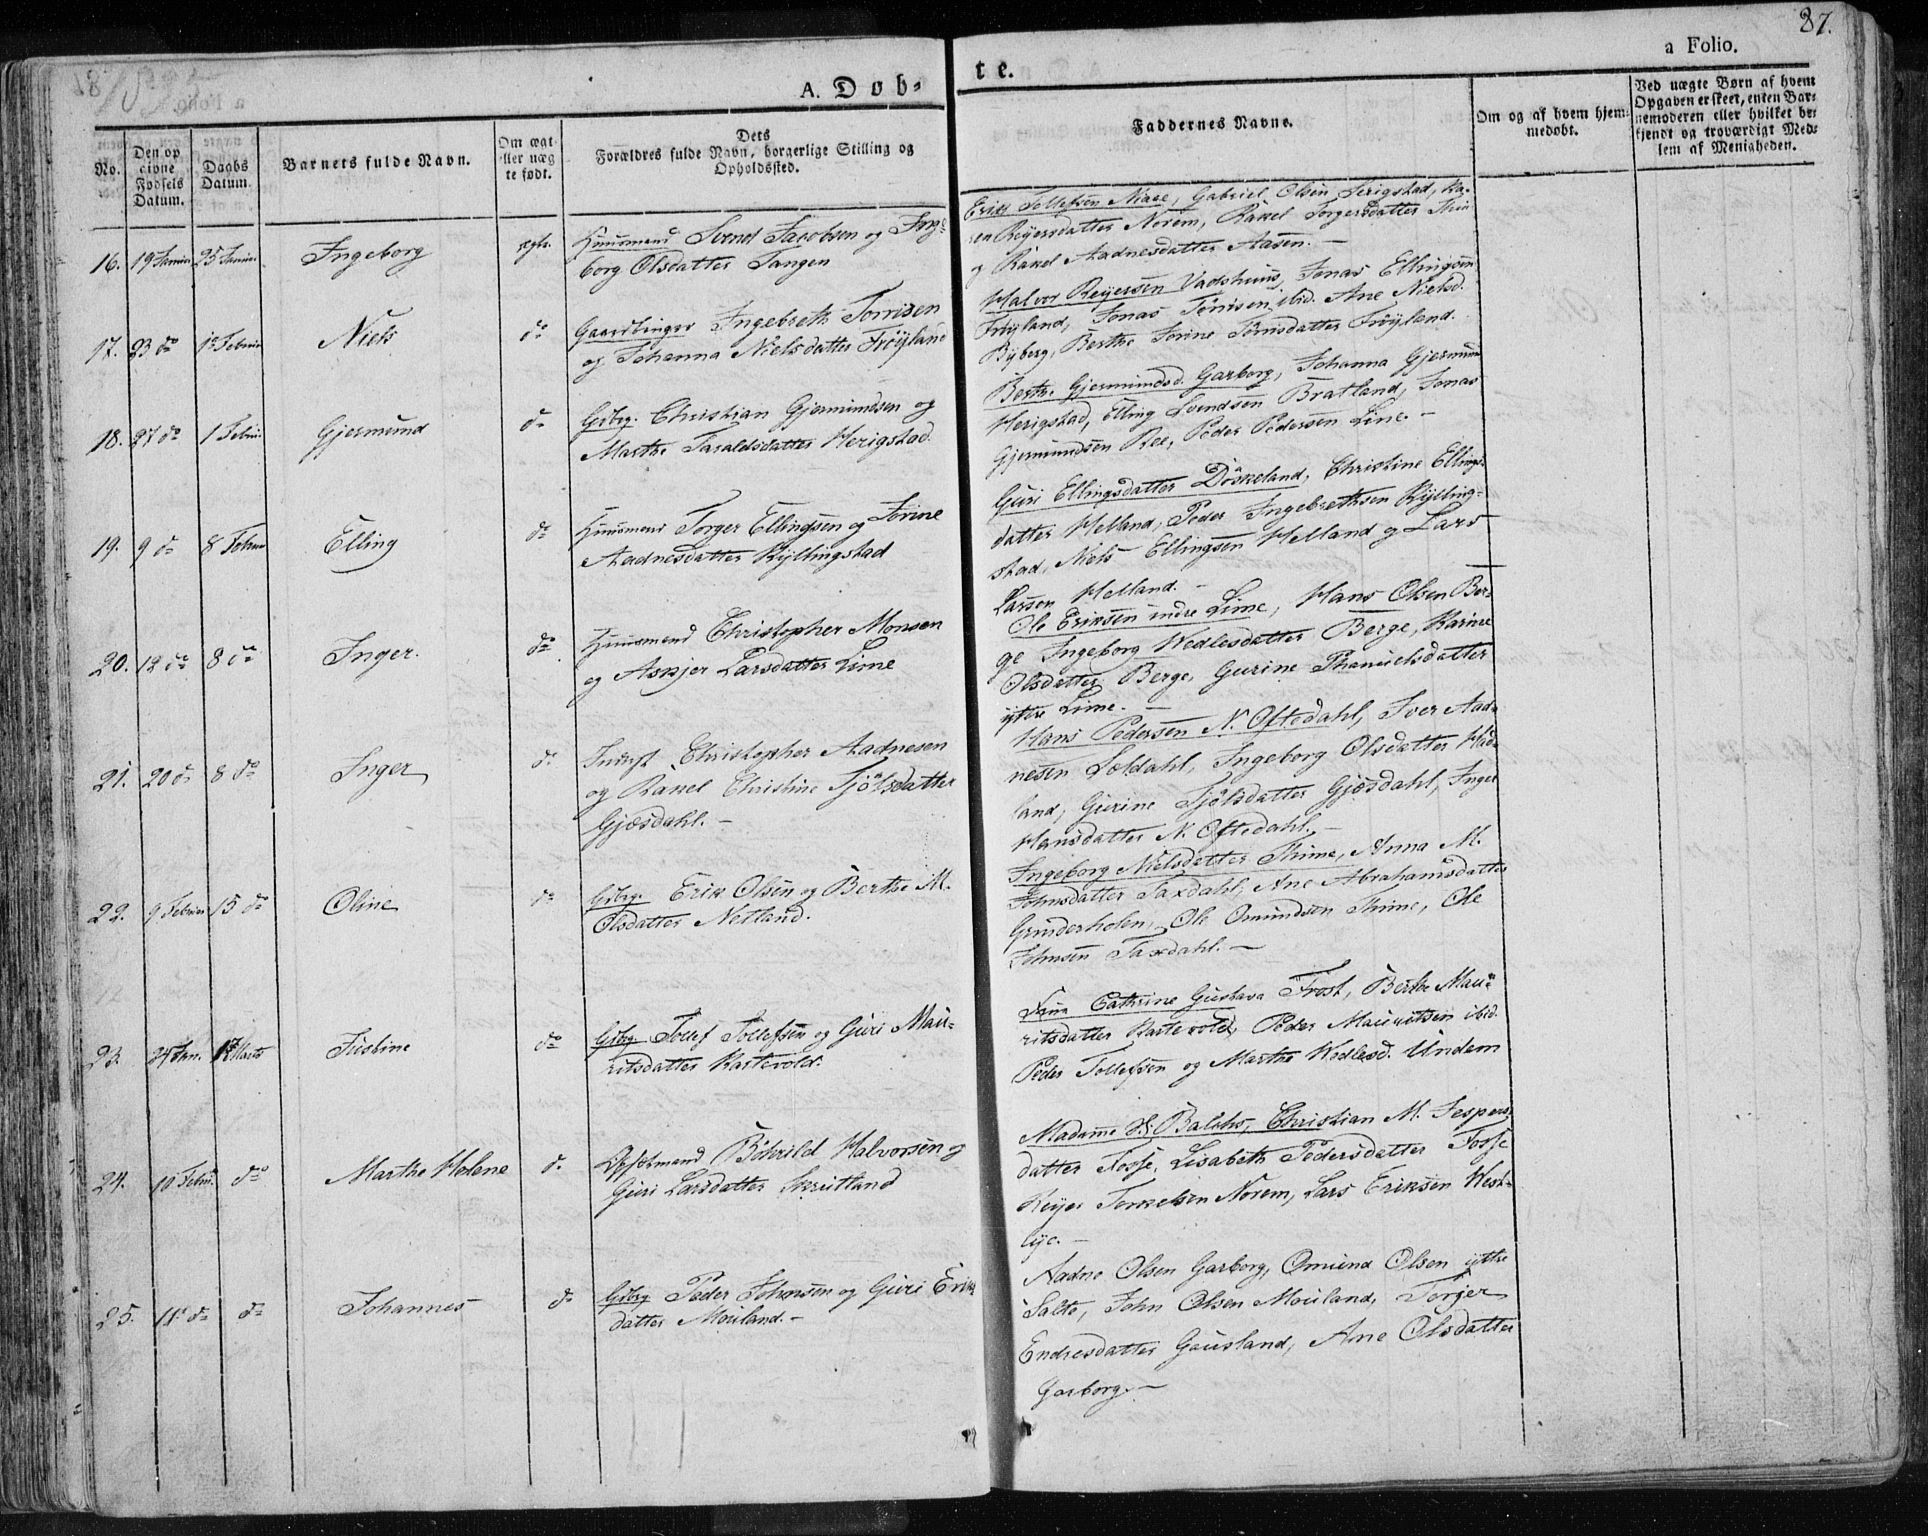 87.
a Folio.
A. Døb-
te.
No.
Den op
givne
Fødsels
Datum.
Daabs
Datum.
Barnets fulde Navn.
Om ægt
eller uæg
te født.
Dets
Forældres fulde Navn, borgerlige Stilling og
Opholdssted.
Faddernes Navne.
Om og af hvem hjem-
medøbt.
Ved uægte Børn af hvem
Opgaven er skeet, enten Bar-
nemoderen eller hvilket be-
kjendt og troværdigt Med-
lem af Menigheden.
16. 19 Januar 25 Januar Ingeborg ægte. Huusmand Svend Jacobsen og Inge-
borg Olsdatter Tangen
Erik Tollefsen Niaae, Gabriel Olsen Serigstad, Ka-
ren Reijersdatter Norem, Rakel Torgersdatter
og Rakel Aadnesdatter Aasen. -
17. 23 do 1e Februar Niels do Gaardbruger Ingebreth Tonnisen
og Johanna Nielsdatter Frøyland
Halvor Reijersen Vadshuus, Jonas Ellingsen
Frøyland, Jonas Tönnisen ibid. Ane Nielsd.
Byberg, Berthe Sorine Tönnisdatter Frøyland.
18. 27 do 1 Februar Gjermund do Gdbrg. Christian Gjermundsen og
Marthe Taraldsdatter Herigstad.
Berthe Gjermundsd. Garborg, Johanna Gjermunds
Herigstad, Elling Svendsen Bratland, Jonas
Gjermundsen Ree, Peder Pedersen Line -
19. 9 do 8 Februar Elling do Huusmand Torger Ellingsen og Sorine
Aadnesdatter Kyllingstad
Guri Ellingsdatter Döskeland, Christine Ellings-
datter Helland, Peder Ingebrethsen Kylling-
stad, Niels Ellingsen Helland og Lars
Larsen Helland. -
20. 12 do 8 do Inger. do Huusmand Christopher Monsen
og Askjer Larsdatter Lime
Ole Eriksen indre Lime, Hans Olsen Ber-
ge Ingeborg Wedlesdatter Berge, Karine
Olsdatter Berge, Gurine Phanuelsdatter
ytre Lime. -
21. 20 do 8 do Inger do Christopher Aadnesen
og Rakel Christine Tjölsdatter
Gjæsdahl. -
Hans Pedersen N. Oftedahl, Iver Aad-
nesen Soldahl, Ingeborg Olsdatter Mad-
land, Gurine Tjölsdatter Gjæsdahl, Inger
Hansdatter N. Oftedahl. -
22. 9 Februar 15 do Oline do Gdbrg. Erik Olsen og Berthe M.
Olsdatter Netland.
Ingeborg Nielsdatter Thime, Anna M.
Johnsdatter Taxdahl, Ane Abrahamsdatter
Grinderholen, Ole Omundsen Thime, Ole
Johnsen Taxdahl. -
23. Jan. Marts Justine do Gdbrg Tollef Tollefsen og Guri Mau-
ritsdatter Kartevold.
Cathrine Gustava Frost, Berthe Mau-
ritsdatter Kartevold, Peder Mauritsen ibid.
Peder Tollefsen og Marthe Wedlesd. Undem
24. 10 Febr. do Marthe Helene do Bøhrild Halvorsen og
Guri Larsdatter Skrutland
Madame Balchs, Christian M. Jespers-
datter Fosse, Lisabeth Pedersdatter Fosse
Reijer Torkelsen Norem, Lars Eriksen West-
lye. -
25. 11 do do Johannes do Gdbrg Peder Johnsen og Guri Eriks
datter Mouland. -
Aadne Olsen Garborg, Omund Olsen ytre
Salte, John Olsen Mouland, Torjer
Endresdatter Gausland, Ane Olsdatter
Garborg. -